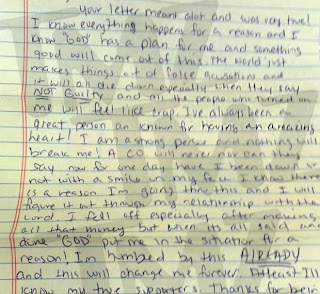 Your letter meant alot and was very true!
I know everything happens for a reason and I
know "GOD" has a plan for me and something
good will come out of this. The world just
makes things out of false accusations and
it will all die down especially when they say
NOT GUILTY and all the people who turned on
me will feel like crap. I've always been a
great person an known for having an amazing
heart! I am a strong person and nothing will
break me! A CO will never nor can they
say now for one day have I been down or
not with a smile on my face. I know there
is a reason Im going thru this and I will
figure it out through my relationship with the
Lord. I fell off especially after making
all that money but when its all said and
done "GOD" put me in the situation for a
reason! Im humbled by this ALREADY
and this will change me forever. Atleast Ill
know my true supporters. Thanks for bein